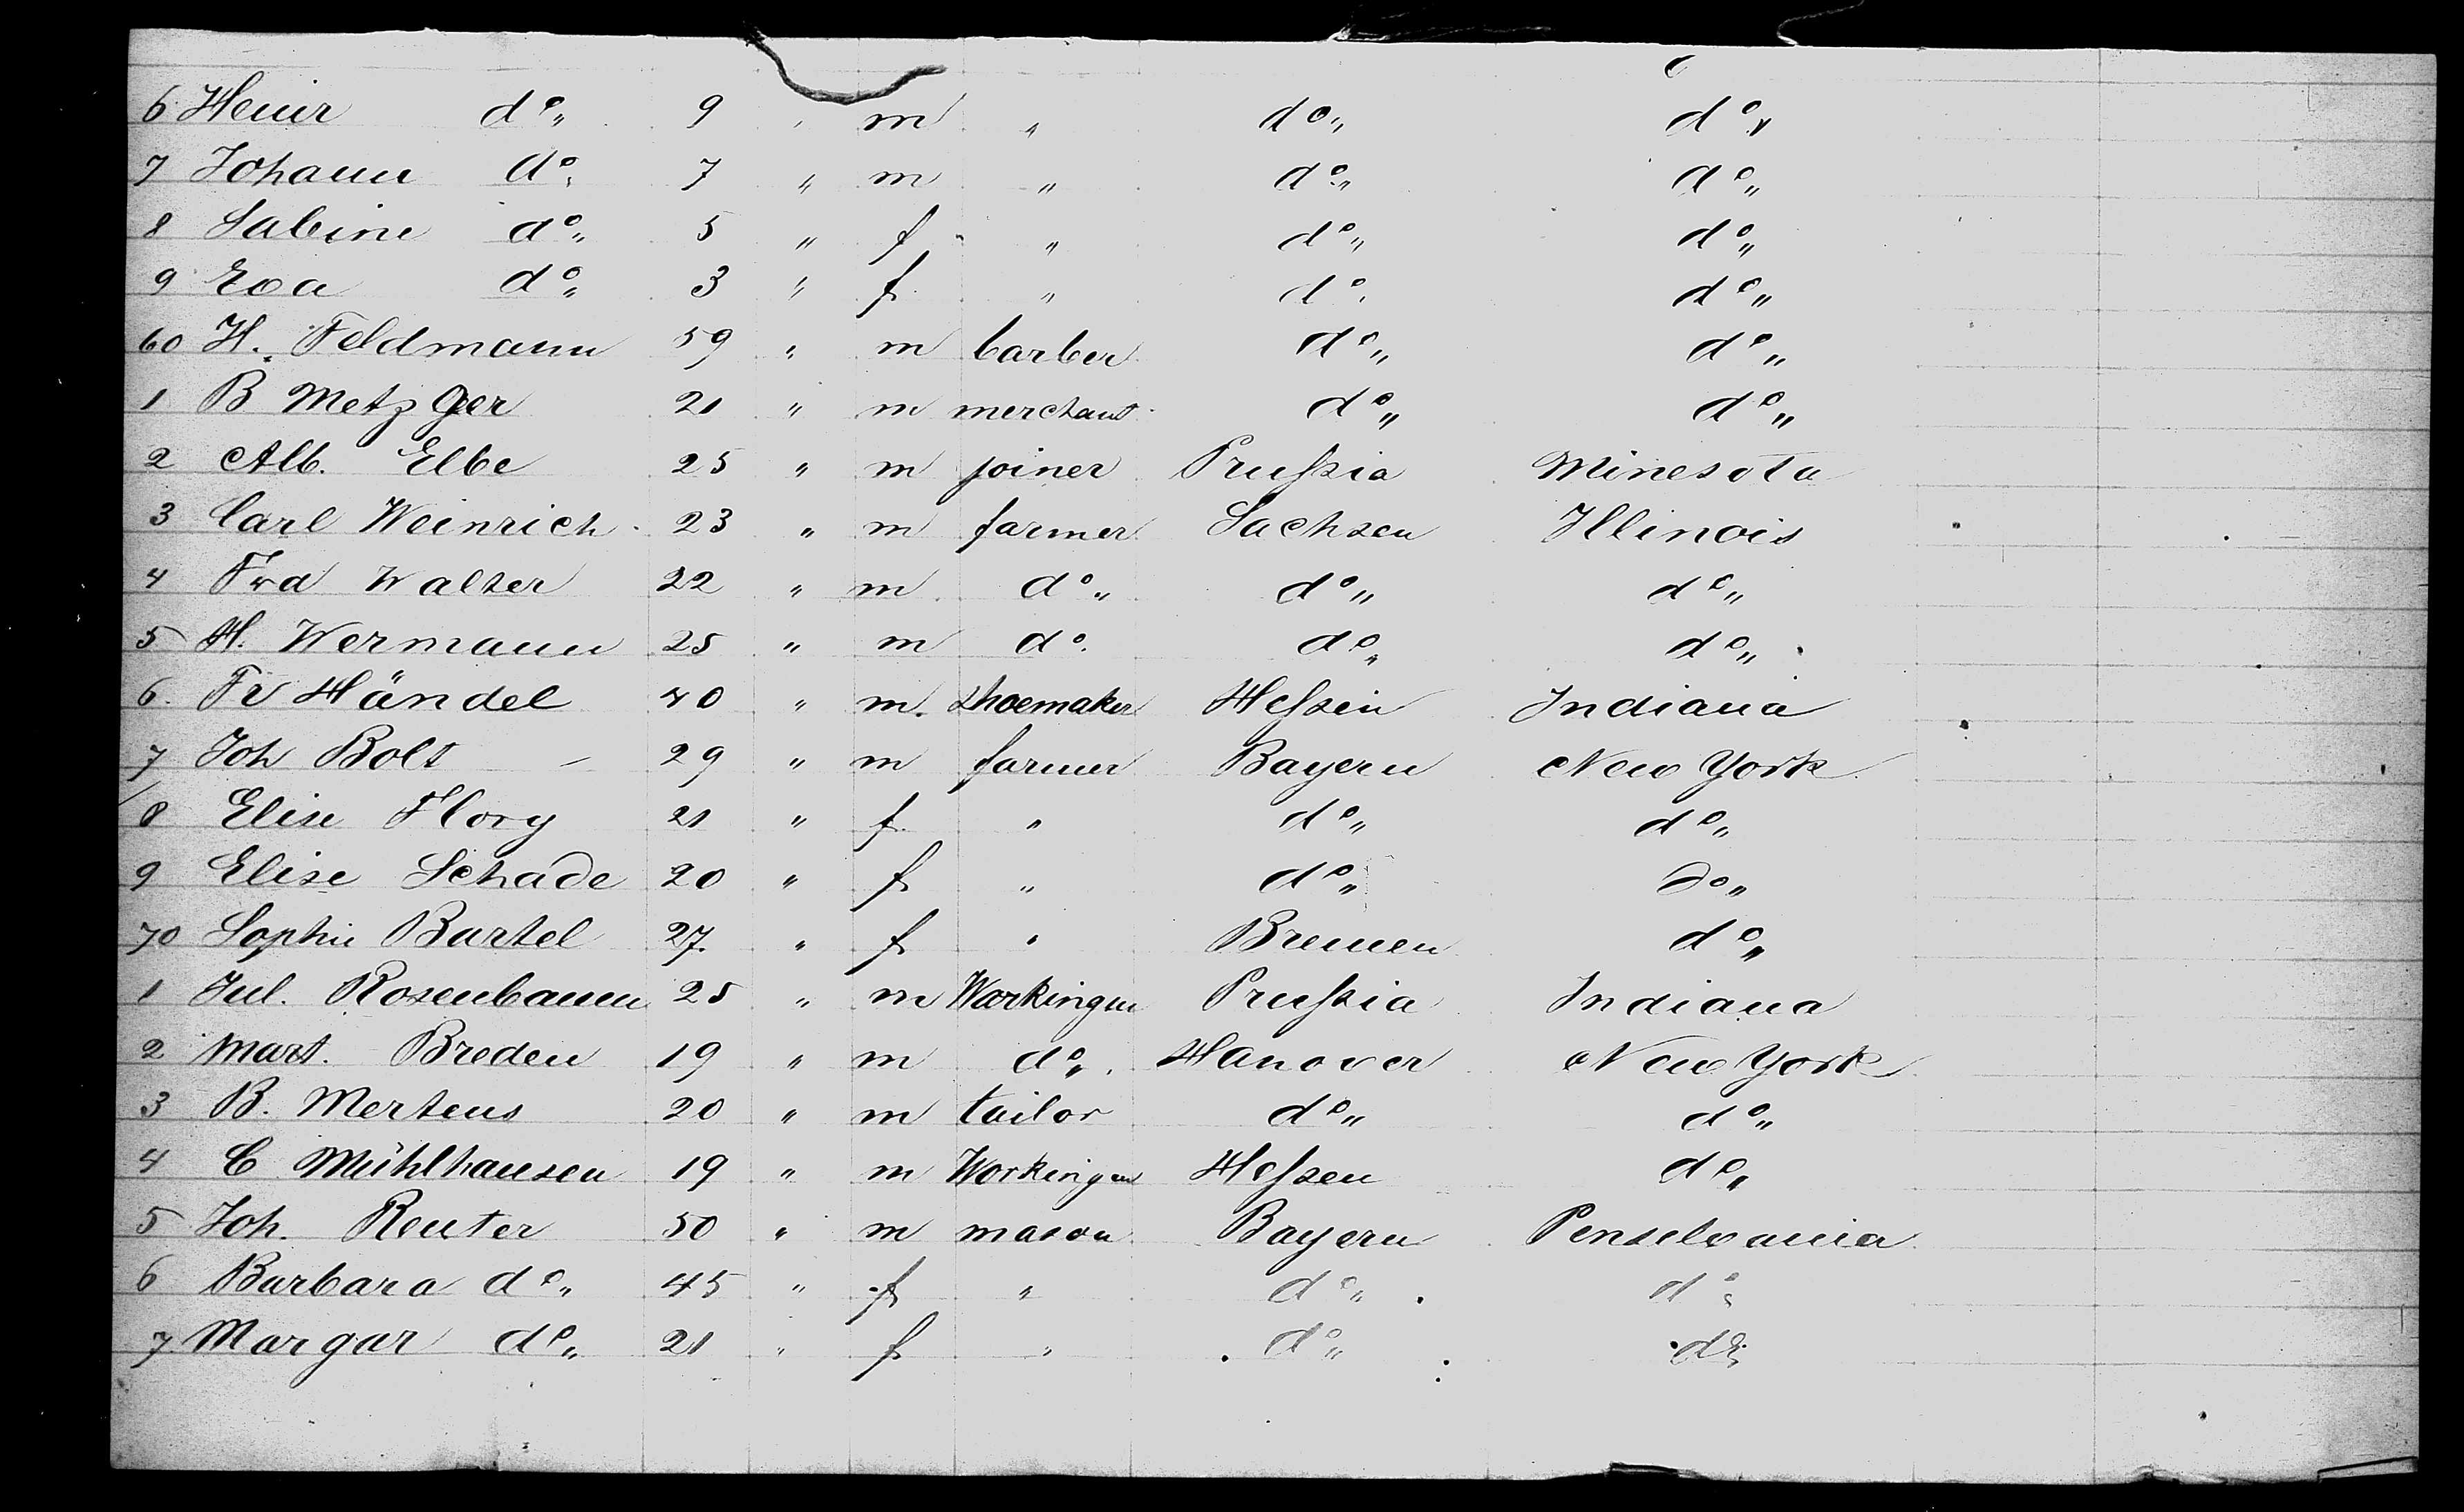 6 Heinr do 9 " m " do do
7 Johann do 7 " m " do do
8 Sabine do 5 " f " do do
9 Eva do 3 " f " do do
60 H. Feldmann 59 " m barber do do
1 B Metzger 21 " m merchant do do
2 Alb. Elbe 25 " m joiner Prußia Minesota
3 Carl Weinrich 23 " m farmer Sachsen Illinois
4 Frd Walter 22 " m do do do
5 H. Wermann 25 " m do do do
6. Fr Händel 40 " m. shoemaker Heßen Indiana
7 Joh Bolt - 29 " m farmer Bayern New York
8 Elise Flory 21 " f " do do
9 Elise Schade 20 " f " do do
70 Sophie Bartel 27 " f " Bremen do
1 Jul. Rosenbaum 25 " m Workingm Prußia Indiana
2 Mart. Breden 19 " m do Hanover New York
3 B. Mertens 20 " m tailor do do
4 C Mühlhausen 19 " m Workingm Heßen do
5 Joh. Reuter 50 " m mason Bayern Penselvania
6 Barbara do 45 " f " do do
7 Margar do 21 " f " do do